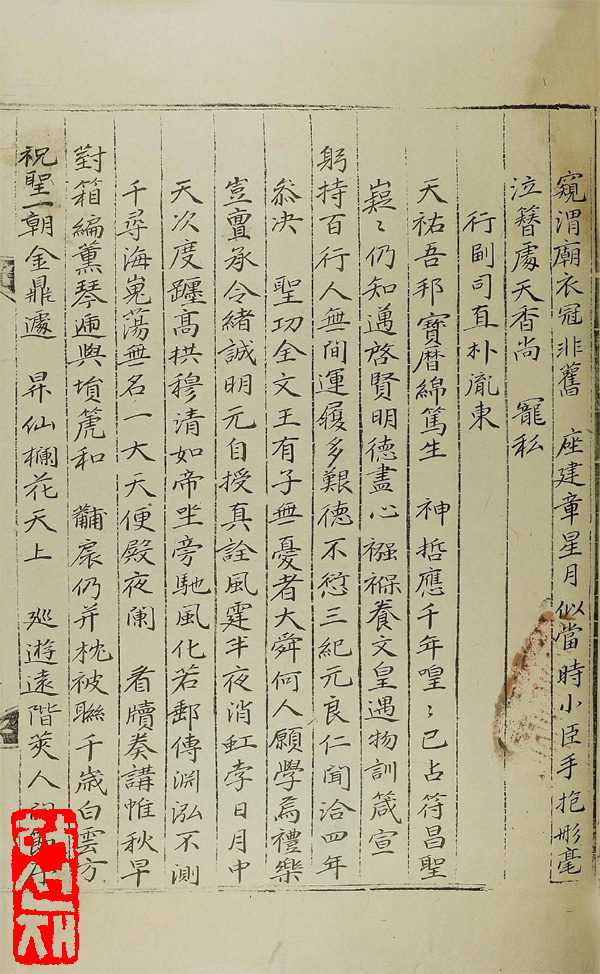 窺渭廟衣冠非舊 座建章星月似當時小臣手抱彤毫
泣簪處天香尚 寵私
行副司直朴胤東
天祐吾邦寶曆綿篤生 神哲應千年喤〻已占符昌聖
嶷〻仍知邁啓賢明德盡心襁褓養文皇遇物訓箴宣
躬持百行人無間運履多艱德不愆三紀元良仁聞洽四年
叅决 聖功全文王有子無憂者大舜何人願學焉禮樂
豈亶承令緒誠明元自授真詮風霆半夜消虹孛日月中
天次度躔高拱穆清如帝坐旁馳風化若郵傳淵泓不測
千尋海嵬蕩無名一大天便殿夜闌 看牘奏講帷秋早
對箱編薰琴迊與塤箎和 黼扆仍并枕被聯千歲白雲方
祝聖一朝金鼎遽 昇仙欄花天上 廵遊遠階蓂人